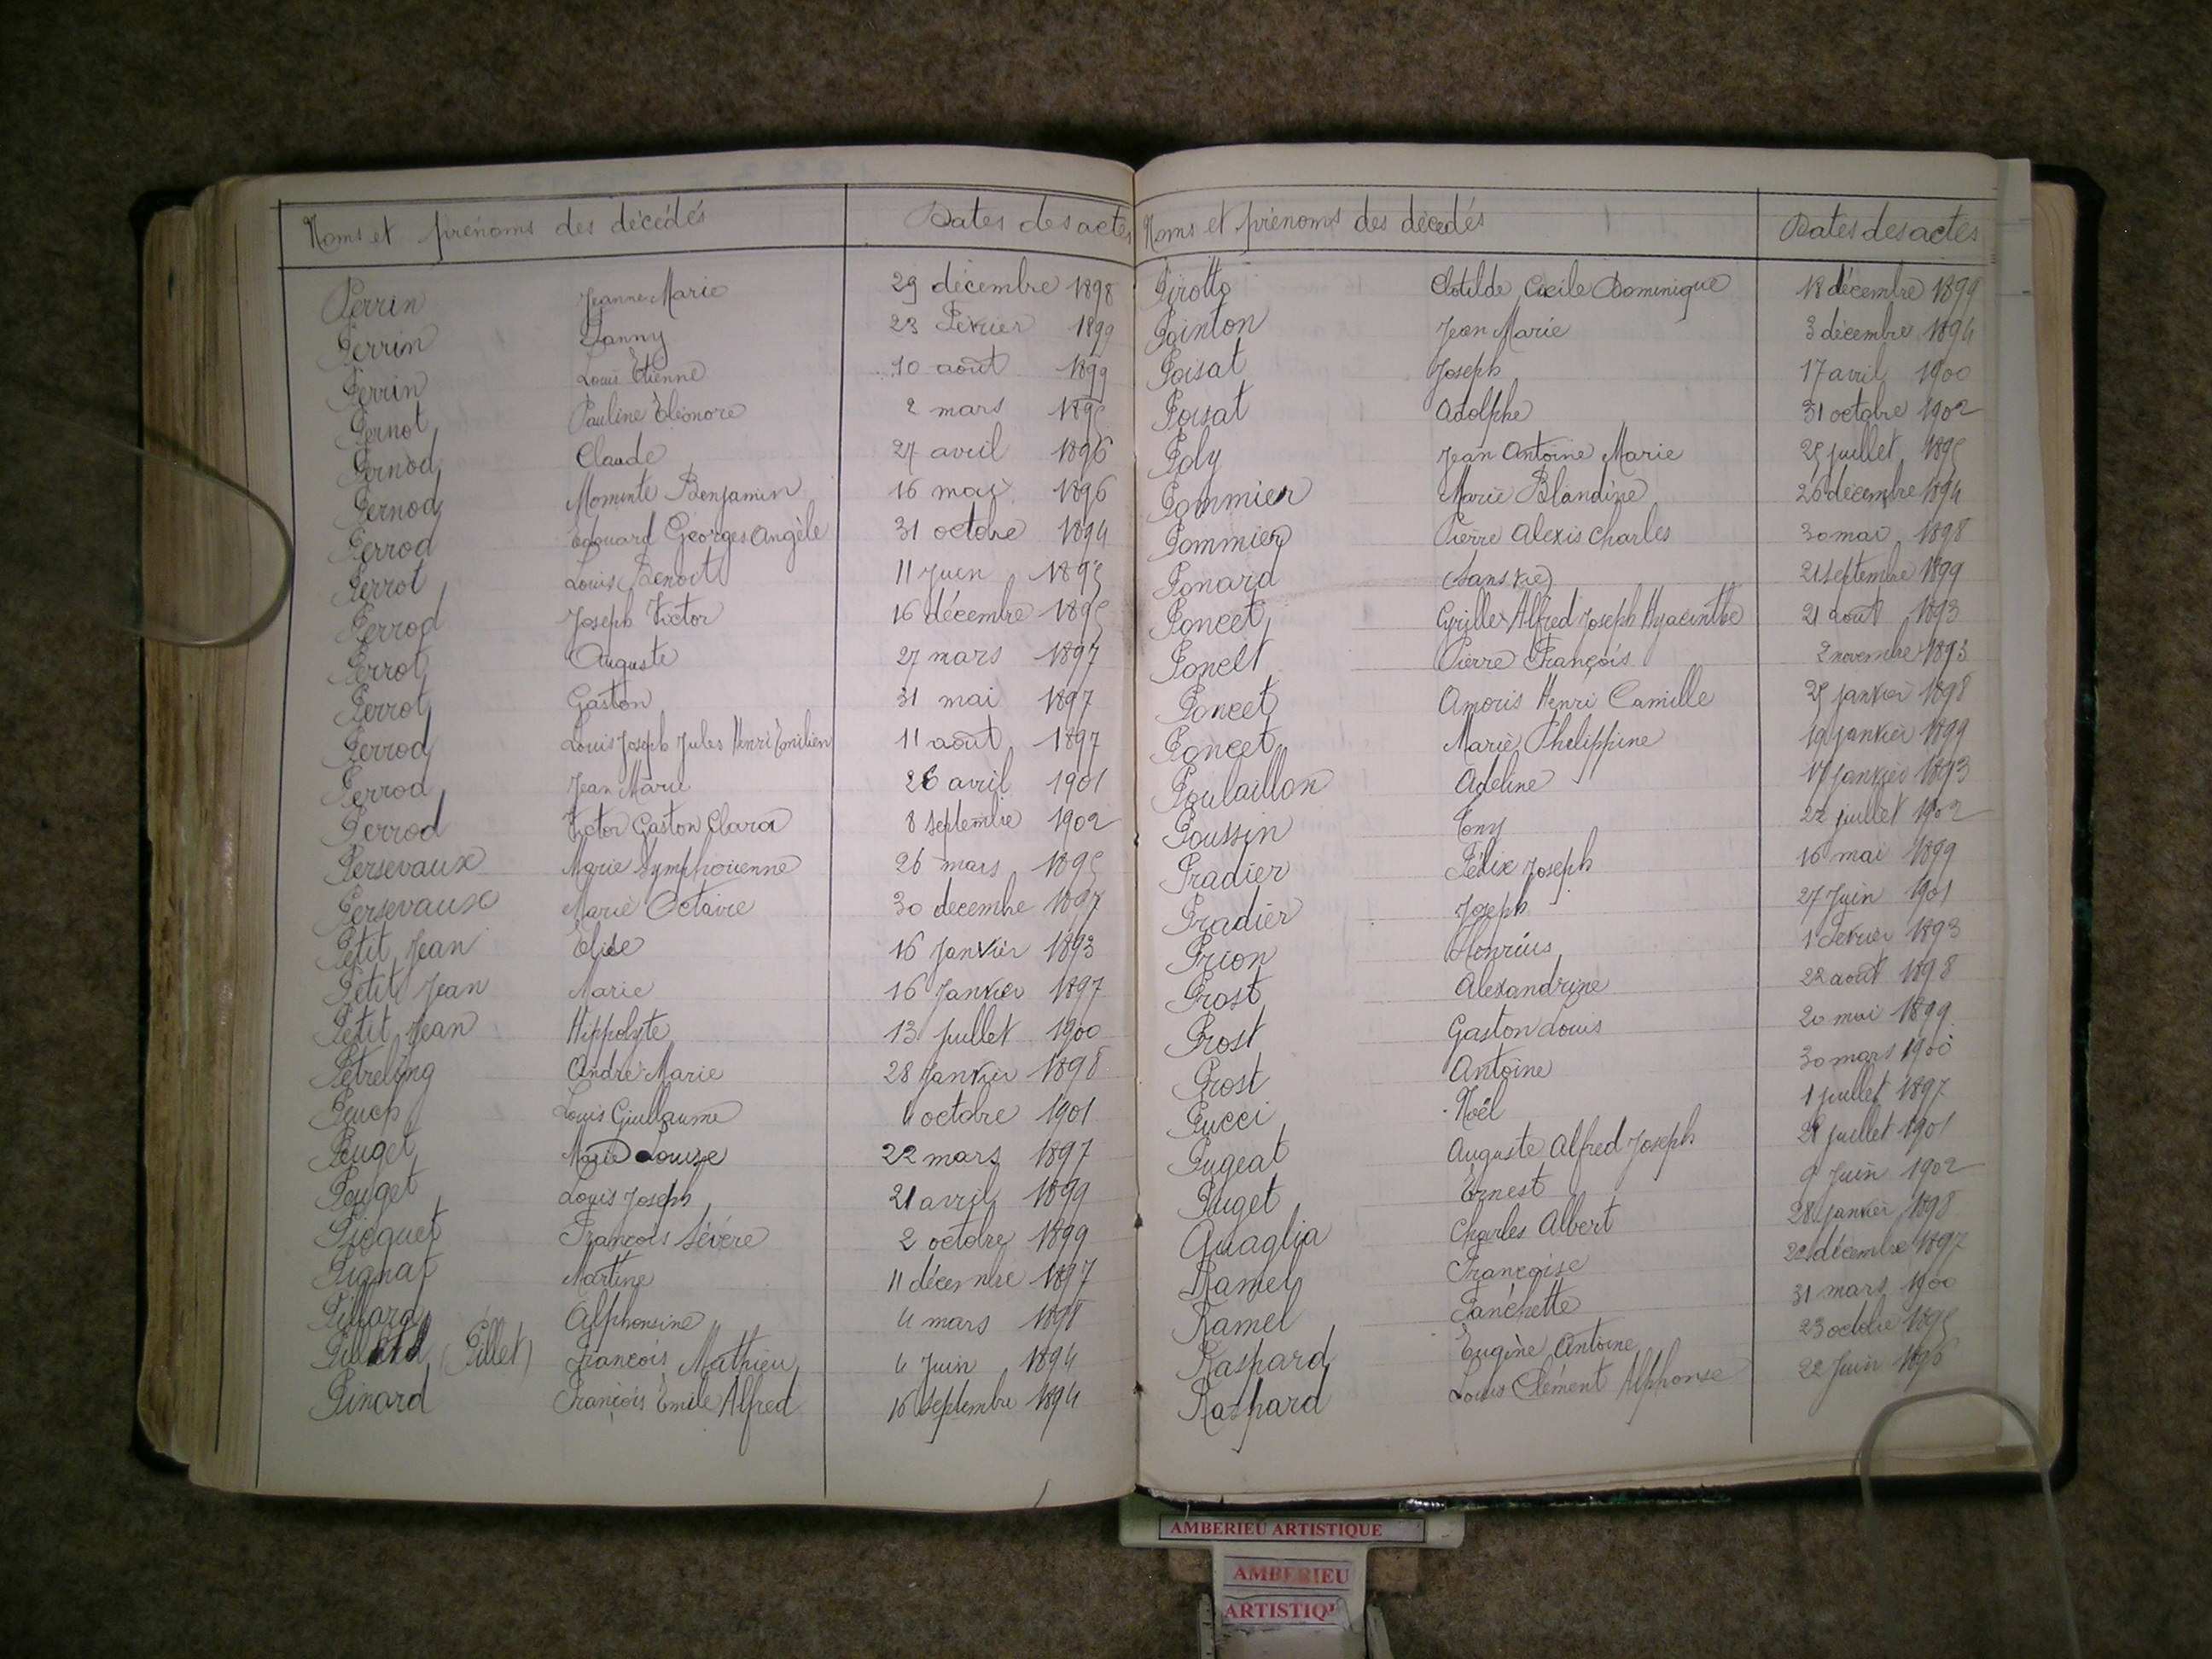 Noms et prénoms des décédés Dates des actes
Perrin Jeanne Marie 29 décembre 1898
Perrin Fanny 23 Février 1899
Perrin Louis Etienne 10 août 1899
Pernot Pauline Eléonore 2 mars 1895
Pernod Claude 27 avril 1896
Pernod Benjamin 16 mai 1896
Perrod Edouard Georges Angèle 31 octobre 1894
Perrot Louis Benoit 11 Juin 1895
Perrod Joseph Victor 16 décembre 1895
Perrot Auguste 27 mars 1897
Perrot Gaston 31 mai 1897
Perrod Louis Joseph Jules Henri Emilien 11 août 1897
Perrod Jean Marie 26 avril 1901
Perrod Victor Gaston Clara 8 septembre 1902
Persevaux Marie Symphorienne 26 mars 1895
Persevaux Marie Octavie 30 decembre 1897
Petit Jean Elise 16 Janvier 1893
Petit Jean Marie 16 Janvier 1897
Petit Jean Hippolyte 13 juillet 1900
Petreling André Marie 28 Janvier 1898
Peuch Louis Guillaume 4 octobre 1901
Peuget Marie Louise 22 mars 1897
Peuget Louis Joseph 21 avril 1899
Picquet François Sévère 2 octobre 1899
Pignat Martine 11 décembre 1897
Pillard Alphonsine 4 mars 1898
(Pillet) François Mathieu 4 Juin 1894
Pinard François Emile Alfred 16 septembre 1894
Noms et prénoms des décédés Dates des actes
Pirotto Clotilde Cécile Dominique 18 décembre 1899
Pointon Jean Marie 3 décembre 1894
Poisat Joseph 17 avril 1900
Poisat Adolphe 31 octobre 1902
Poly Jean Antoine Marie 25 juillet 1895
Pommier Marie Blandine 26 décembre 1894
Pommier Pierre Alexis Charles 30 mai 1898
Ponard (sans vie) 21 septembre 1899
Poncet Cyrille Alfred Joseph Hyacinthe 21 août 1893
Poncet Pierre François 2 novembre 1893
Poncet Amoris Henri Camille 25 janvier 1898
Poncet Marie Phelippine 19 janvier 1899
Poulaillon Adeline 17 janvier 1893
Poussin Tony 22 juillet 1902
Pradier Félix Joseph 16 mai 1899
Pradier Joseph 27 Juin 1901
Prion 1 Février 1893
Prost Alexandrine 22 août 1898
Prost Gaston Louis 20 mai 1899
Prost Antoine 30 mars 1900
Pucci Noël 1 juillet 1897
Pugeat Auguste Alfred Joseph juillet 1901
Puget Ernest 9 Juin 1902
Quaglia Charles Albert 28 janvier 1898
Ramel Françoise 22 décembre 1897
Ramel Fanchette 31 mars 1900
Raspard Eugène Antoine 23 octobre 1895
Raspard Louis Clément Alphonse 22 Juin 1896
AMBERIEU ARTISTIQUE
AMBERIEU
ARTISTIQU